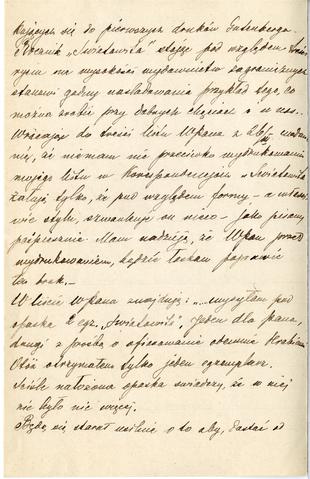 kających się do pierwszych druków Gutenberga.
Rocznik „Światowita" stojąc pod względem treści
rycin na wysokości wydawnictw zagranicznych
stanowi godny naśladowania przykład tego, co
można zrobić przy dobrych chęciach i u nas.
Wracając do treści listu WPana z
nię, że niemam nic przeciwko wydrukowaniu
mojego listu w Korespondencjach „Światowita"
Żałuję tylko, że pod względem formy – a właści-
wie stylu, szwankuje on nieco – jako pisany
pośpiesznie Mam nadzieję, że WPan przed
wydrukowaniem, będzie łaskaw poprawić
ten brak. –
W liście WPana znajduję: „... wysyłam pod
opaską 2 egz. „Światowit", jeden dla pana,
drugi z prośbą o ofiarowanie
Otóż otrzymałem tylko jeden egzemplarz.
Ściśle nałożona opaska świadczy, że w niej
nic było nic więcej.
Będę się starał usilnie o to aby, dostać od